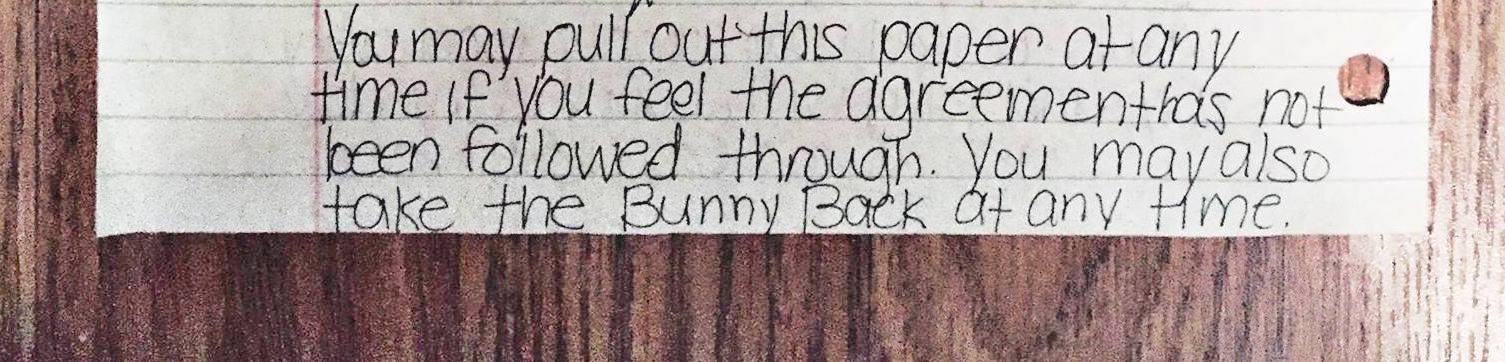 You may pull out this paper at any
time if you feel the agreement has not
been followed through. You may also
take the Bunny Back at any time.